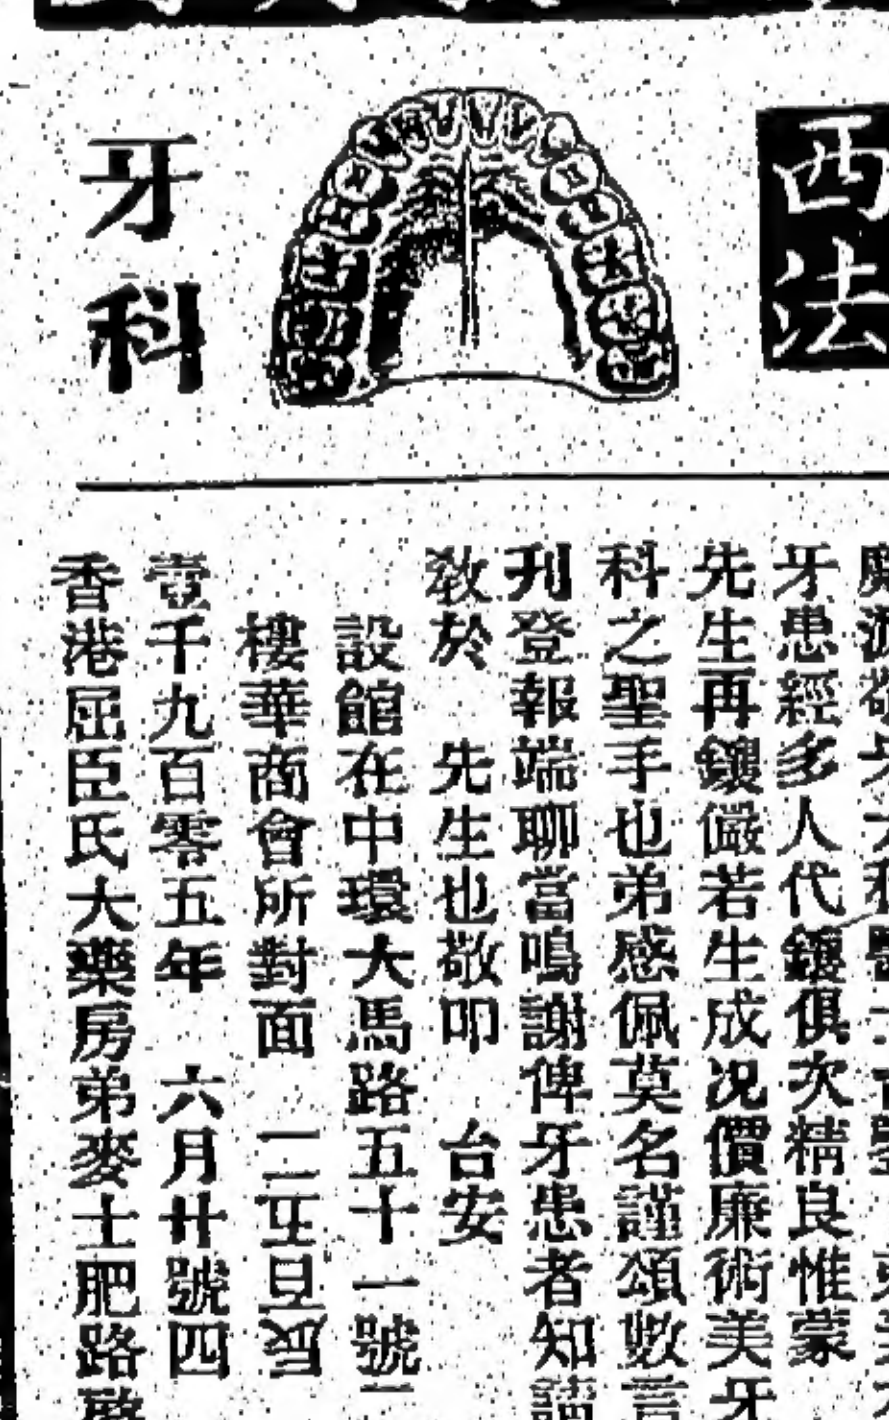 西法
牙科
牙患經多人代鑲俱次精良惟蒙
先生再鑲儼若生成况價廉術美牙
科之聖手也弟感佩莫名謹頌數言
刊登報端聊當鳴謝俾牙患者知請
教於 先生也敬叩 台安
設館在中環大馬路五十一號二
樓華商會所對面
壹千九百零五年 六月廿號四
香港屈臣氏大藥房弟麥士肥路啟